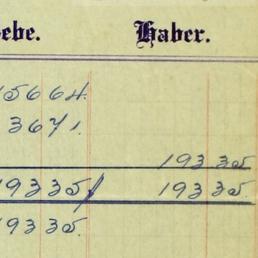 ebe. Haber.
15664.
3671.
19335
19335 19335.
19335.